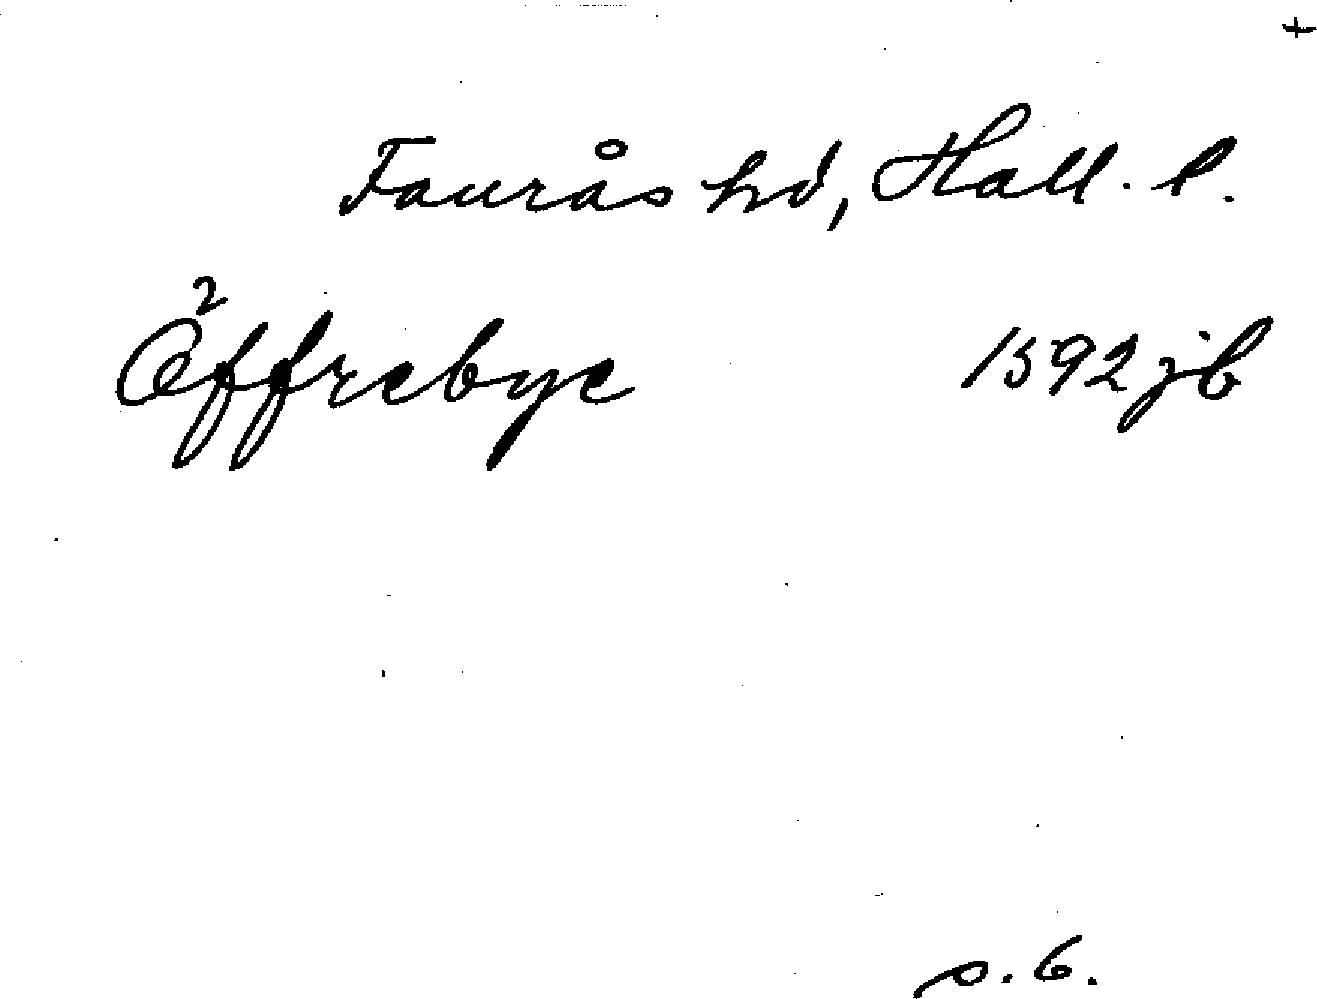 +
Faurås hd, Hall. l.
Öffrebye 1592 jb
s. 6.